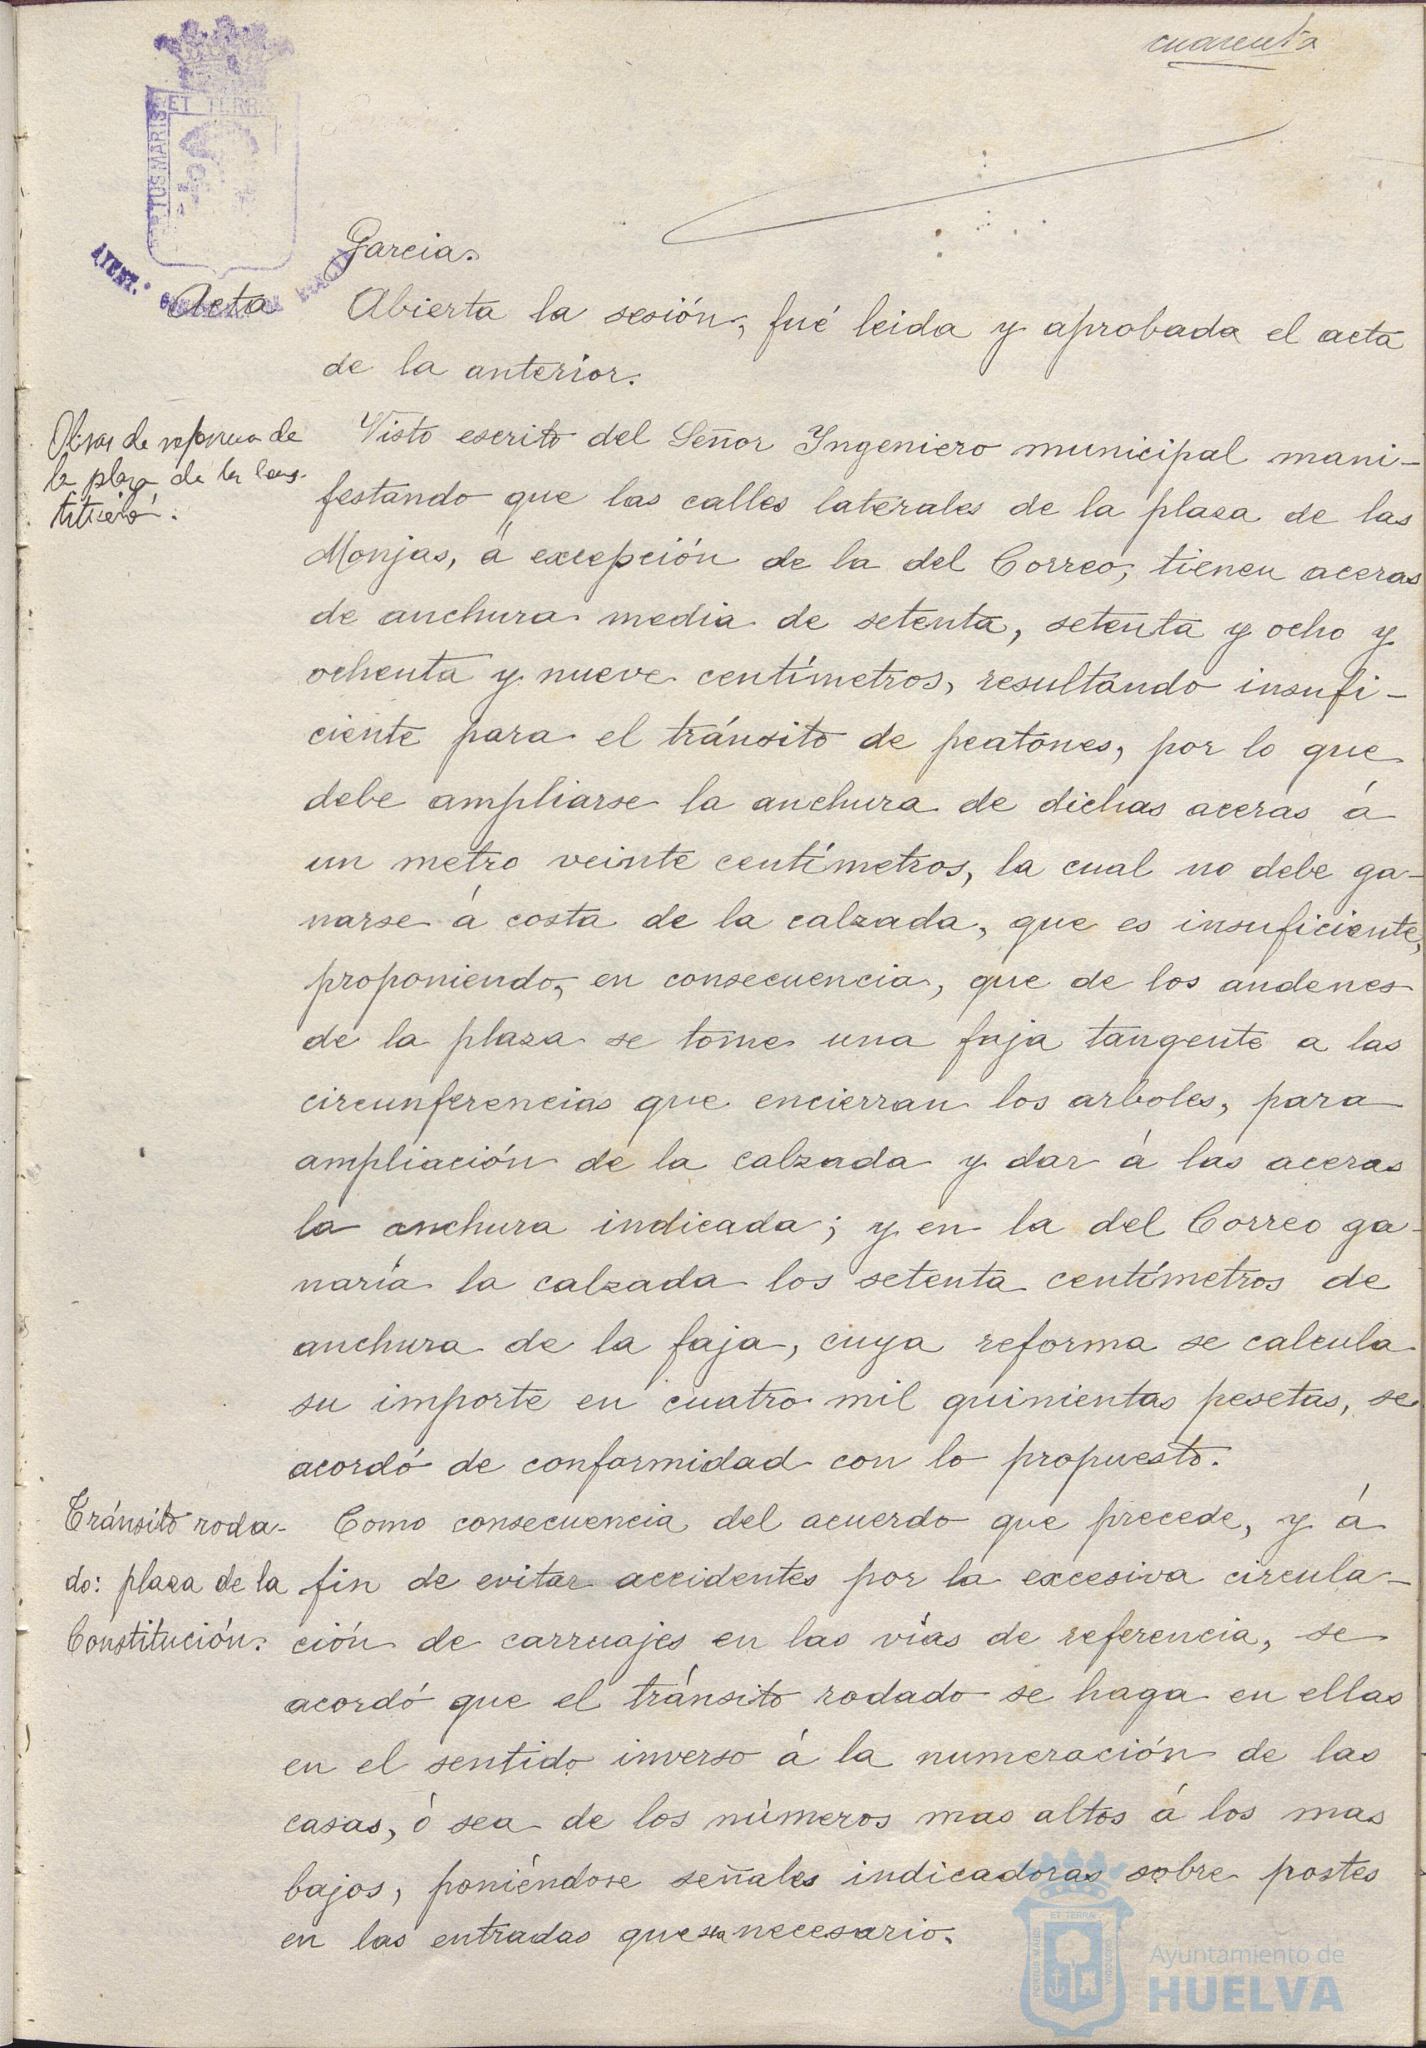 cuarenta
ET TERR
TUS MARIS
AYUNT.º
Garcia.
Acta
Abierta la sesión, fué leida y aprobada el acta
de la anterior.
Obras de reforma de
la plaza de la Cons-
titución.
Visto escrito del Señor Ingeniero municipal mani-
festando que las calles laterales de la plaza de las
Monjas, á excepción de la del Correo, tienen aceras
de anchura media de setenta, setenta y ocho y
ochenta y nueve centímetros, resultando insufi-
ciente para el tránsito de peatones, por lo que
debe ampliarse la anchura de dichas aceras á
un metro veinte centímetros, la cual no debe ga-
narse á costa de la calzada, que es insuficiente,
proponiendo, en consecuencia, que de los andenes
de la plaza se tome una faja tangente a las
circunferencias que encierran los arboles, para
ampliación de la calzada y dar á las aceras
la anchura indicada; y en la del Correo ga-
naría la calzada los setenta centímetros de
anchura de la faja, cuya reforma se calcula
su importe en cuatro mil quinientas pesetas, se
acordó de conformidad con lo propuesto.
Tránsito roda-
do: plaza de la
Constitución.
Como consecuencia del acuerdo que precede, y á
fin de evitar accidentes por la excesiva circula-
ción de carruajes en las vías de referencia, se
acordó que el tránsito rodado se haga en ellas
en el sentido inverso á la numeración de las
casas, ó sea de los números mas altos á los mas
bajos, poniéndose señales indicadoras sobre postes
en las entradas que sea necesario.
ET TERRA
Ayuntamiento de
HUELVA